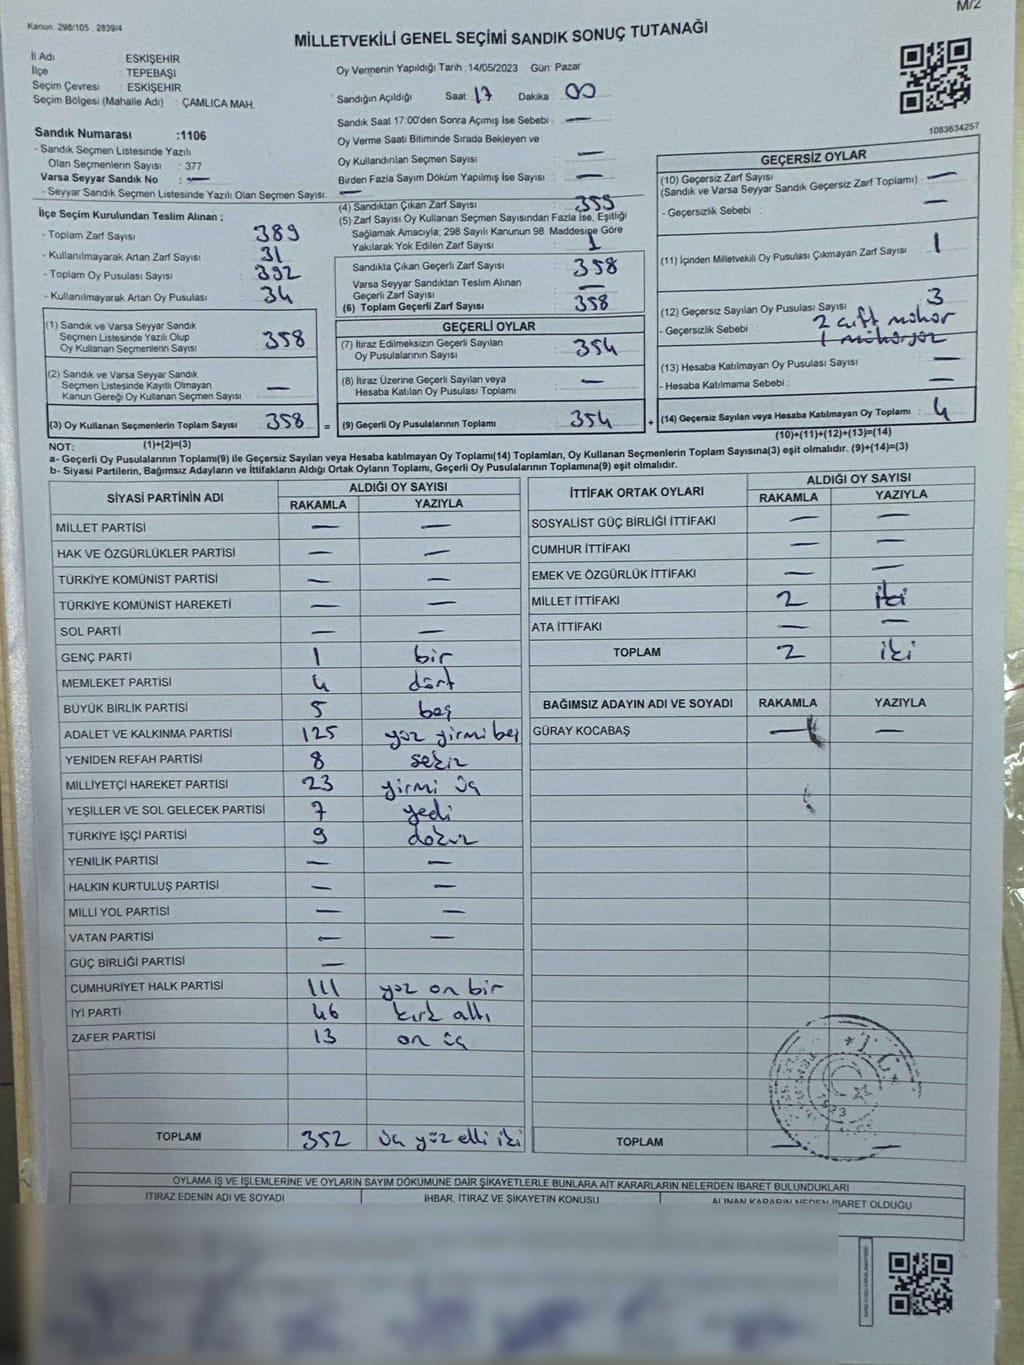 M/2
Kanun: 298/105 2839/4
MİLLETVEKİLİ GENEL SEÇİMİ SANDIK SONUÇ TUTANAĞI
İl Adı : ESKİŞEHİR
İlçe : TEPEBAŞI
Seçim Çevresi : ESKİŞEHİR
Seçim Bölgesi (Mahalle Adı) : ÇAMLICA MAH.
Sandık Numarası :1106
- Sandık Seçmen Listesinde Yazılı
Olan Seçmenlerin Sayısı : 377
Varsa Seyyar Sandık No : —
- Seyyar Sandık Seçmen Listesinde Yazılı Olan Seçmen Sayısı: —
Oy Vermenin Yapıldığı Tarih :14/05/2023 Gün: Pazar
Sandığın Açıldığı Saat: 17 Dakika : 00
Sandık Saat 17:00'den Sonra Açımış İse Sebebi : —
Oy Verme Saati Bitiminde Sırada Bekleyen ve
Oy Kullandırılan Seçmen Sayısı : —
Birden Fazla Sayım Döküm Yapılmış İse Sayısı : —
1083634257
İlçe Seçim Kurulundan Teslim Alınan ;
- Toplam Zarf Sayısı : 389
- Kullanılmayarak Artan Zarf Sayısı : 31
- Toplam Oy Pusulası Sayısı : 392
- Kullanılmayarak Artan Oy Pusulası : 34
(1) Sandık ve Varsa Seyyar Sandık
Seçmen Listesinde Yazılı Olup
Oy Kullanan Seçmenlerin Sayısı : 358
(2) Sandık ve Varsa Seyyar Sandık
Seçmen Listesinde Kayıtlı Olmayan
Kanun Gereği Oy Kullanan Seçmen Sayısı : —
(3) Oy Kullanan Seçmenlerin Toplam Sayısı : 358
(1)+(2)=(3)
(4) Sandıktan Çıkan Zarf Sayısı : 359
(5) Zarf Sayısı Oy Kullanan Seçmen Sayısından Fazla İse, Eşitliği
Sağlamak Amacıyla; 298 Sayılı Kanunun 98. Maddesine Göre
Yakılarak Yok Edilen Zarf Sayısı : 1
Sandıkta Çıkan Geçerli Zarf Sayısı : 358
Varsa Seyyar Sandıktan Teslim Alınan
Geçerli Zarf Sayısı : —
(6) Toplam Geçerli Zarf Sayısı : 358
GEÇERLİ OYLAR
(7) İtiraz Edilmeksizin Geçerli Sayılan
Oy Pusulalarının Sayısı : 354
(8) İtiraz Üzerine Geçerli Sayılan veya
Hesaba Katılan Oy Pusulası Toplamı : —
= (9) Geçerli Oy Pusulalarının Toplamı : 354
GEÇERSİZ OYLAR
(10) Geçersiz Zarf Sayısı
(Sandık ve Varsa Seyyar Sandık Geçersiz Zarf Toplamı) : —
- Geçersizlik Sebebi : —
(11) İçinden Milletvekili Oy Pusulası Çıkmayan Zarf Sayısı : 1
(12) Geçersiz Sayılan Oy Pusulası Sayısı : 3
- Geçersizlik Sebebi : 2 çift mühür
1 mühürsüz
(13) Hesaba Katılmayan Oy Pusulası Sayısı : —
- Hesaba Katılmama Sebebi : —
+ (14) Geçersiz Sayılan veya Hesaba Katılmayan Oy Toplamı : 4
(10)+(11)+(12)+(13)=(14)
NOT:
a- Geçerli Oy Pusulalarının Toplamı(9) ile Geçersiz Sayılan veya Hesaba katılmayan Oy Toplamı(14) Toplamları, Oy Kullanan Seçmenlerin Toplam Sayısına(3) eşit olmalıdır. (9)+(14)=(3)
b- Siyasi Partilerin, Bağımsız Adayların ve İttifakların Aldığı Ortak Oyların Toplamı, Geçerli Oy Pusulalarının Toplamına(9) eşit olmalıdır.
SİYASİ PARTİNİN ADI ALDIĞI OY SAYISI
RAKAMLA YAZIYLA
MİLLET PARTİSİ — —
HAK VE ÖZGÜRLÜKLER PARTİSİ — —
TÜRKİYE KOMÜNİST PARTİSİ — —
TÜRKİYE KOMÜNİST HAREKETİ — —
SOL PARTİ — —
GENÇ PARTİ 1 bir
MEMLEKET PARTİSİ 4 dört
BÜYÜK BİRLİK PARTİSİ 5 beş
ADALET VE KALKINMA PARTİSİ 125 yüz yirmi beş
YENİDEN REFAH PARTİSİ 8 sekiz
MİLLİYETÇİ HAREKET PARTİSİ 23 yirmi üç
YEŞİLLER VE SOL GELECEK PARTİSİ 7 yedi
TÜRKİYE İŞÇİ PARTİSİ 9 dokuz
YENİLİK PARTİSİ — —
HALKIN KURTULUŞ PARTİSİ — —
MİLLİ YOL PARTİSİ — —
VATAN PARTİSİ — —
GÜÇ BİRLİĞİ PARTİSİ —
CUMHURİYET HALK PARTİSİ 111 yüz on bir
İYİ PARTİ 46 kırk altı
ZAFER PARTİSİ 13 on üç
TOPLAM 352 üç yüz elli iki
İTTİFAK ORTAK OYLARI ALDIĞI OY SAYISI
RAKAMLA YAZIYLA
SOSYALİST GÜÇ BİRLİĞİ İTTİFAKI — —
CUMHUR İTTİFAKI — —
EMEK VE ÖZGÜRLÜK İTTİFAKI — —
MİLLET İTTİFAKI 2 iki
ATA İTTİFAKI — —
TOPLAM 2 iki
BAĞIMSIZ ADAYIN ADI VE SOYADI RAKAMLA YAZIYLA
GÜRAY KOCABAŞ — —
T.C.
1923
TOPLAM — —
OYLAMA İŞ VE İŞLEMLERİNE VE OYLARIN SAYIM DÖKÜMÜNE DAİR ŞİKAYETLERLE BUNLARA AİT KARARLARIN NELERDEN İBARET BULUNDUKLARI
İTİRAZ EDENİN ADI VE SOYADI İHBAR, İTİRAZ VE ŞİKAYETİN KONUSU ALINAN KARARIN NEDEN İBARET OLDUĞU